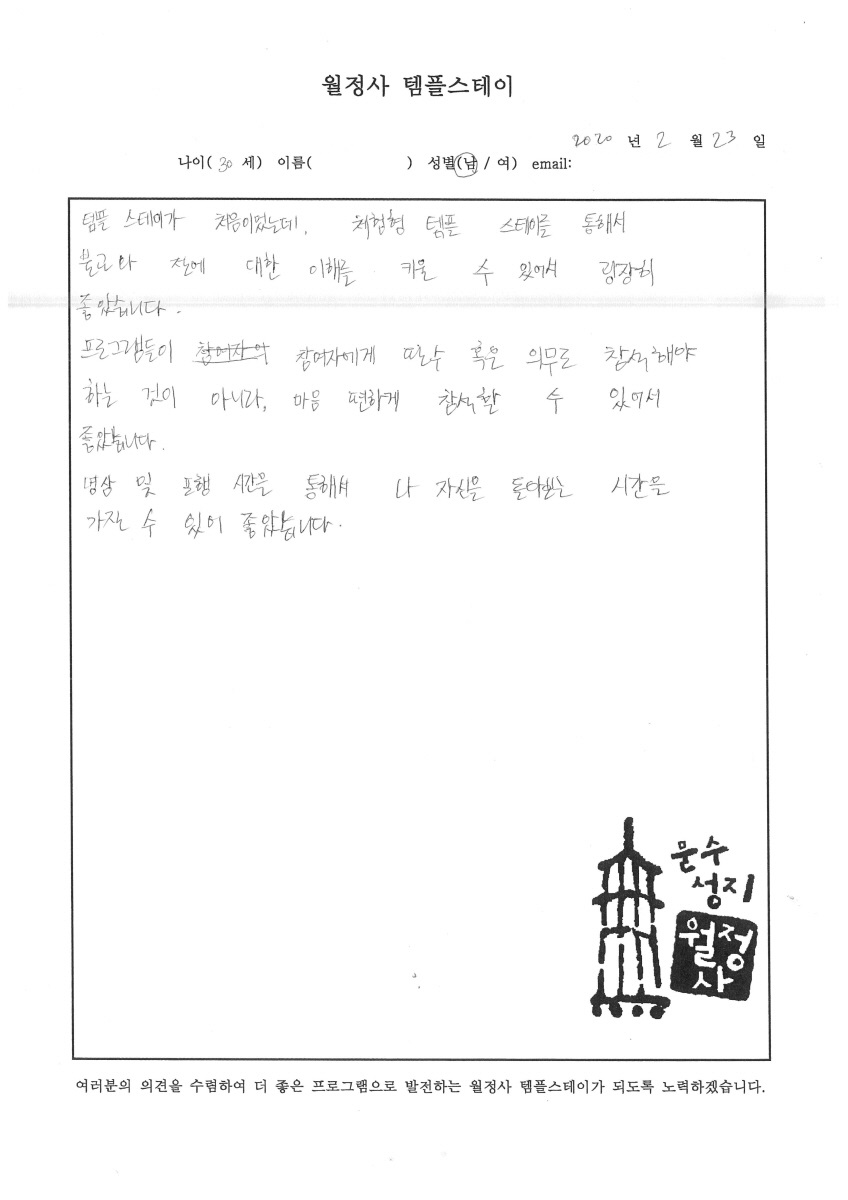 월정사 템플스테이
2020 년 2 월 23 일
나이( 30 세) 이름( ) 성별(남 / 여) email:
템플 스테이가 처음이었는데, 체험형 템플 스테이를 통해서
불교와 절에 대한 이해를 키울 수 있어서 굉장히
좋았습니다.
프로그램들이 참여자의 참여자에게 필수 혹은 의무로 참석해야
하는 것이 아니라, 마음 편하게 참석할 수 있어서
좋았습니다.
명상 및 포행 시간을 통해서 나 자신을 돌아보는 시간을
가질 수 있어 좋았습니다.
문수
성지
월정
사
여러분의 의견을 수렴하여 더 좋은 프로그램으로 발전하는 월정사 템플스테이가 되도록 노력하겠습니다.